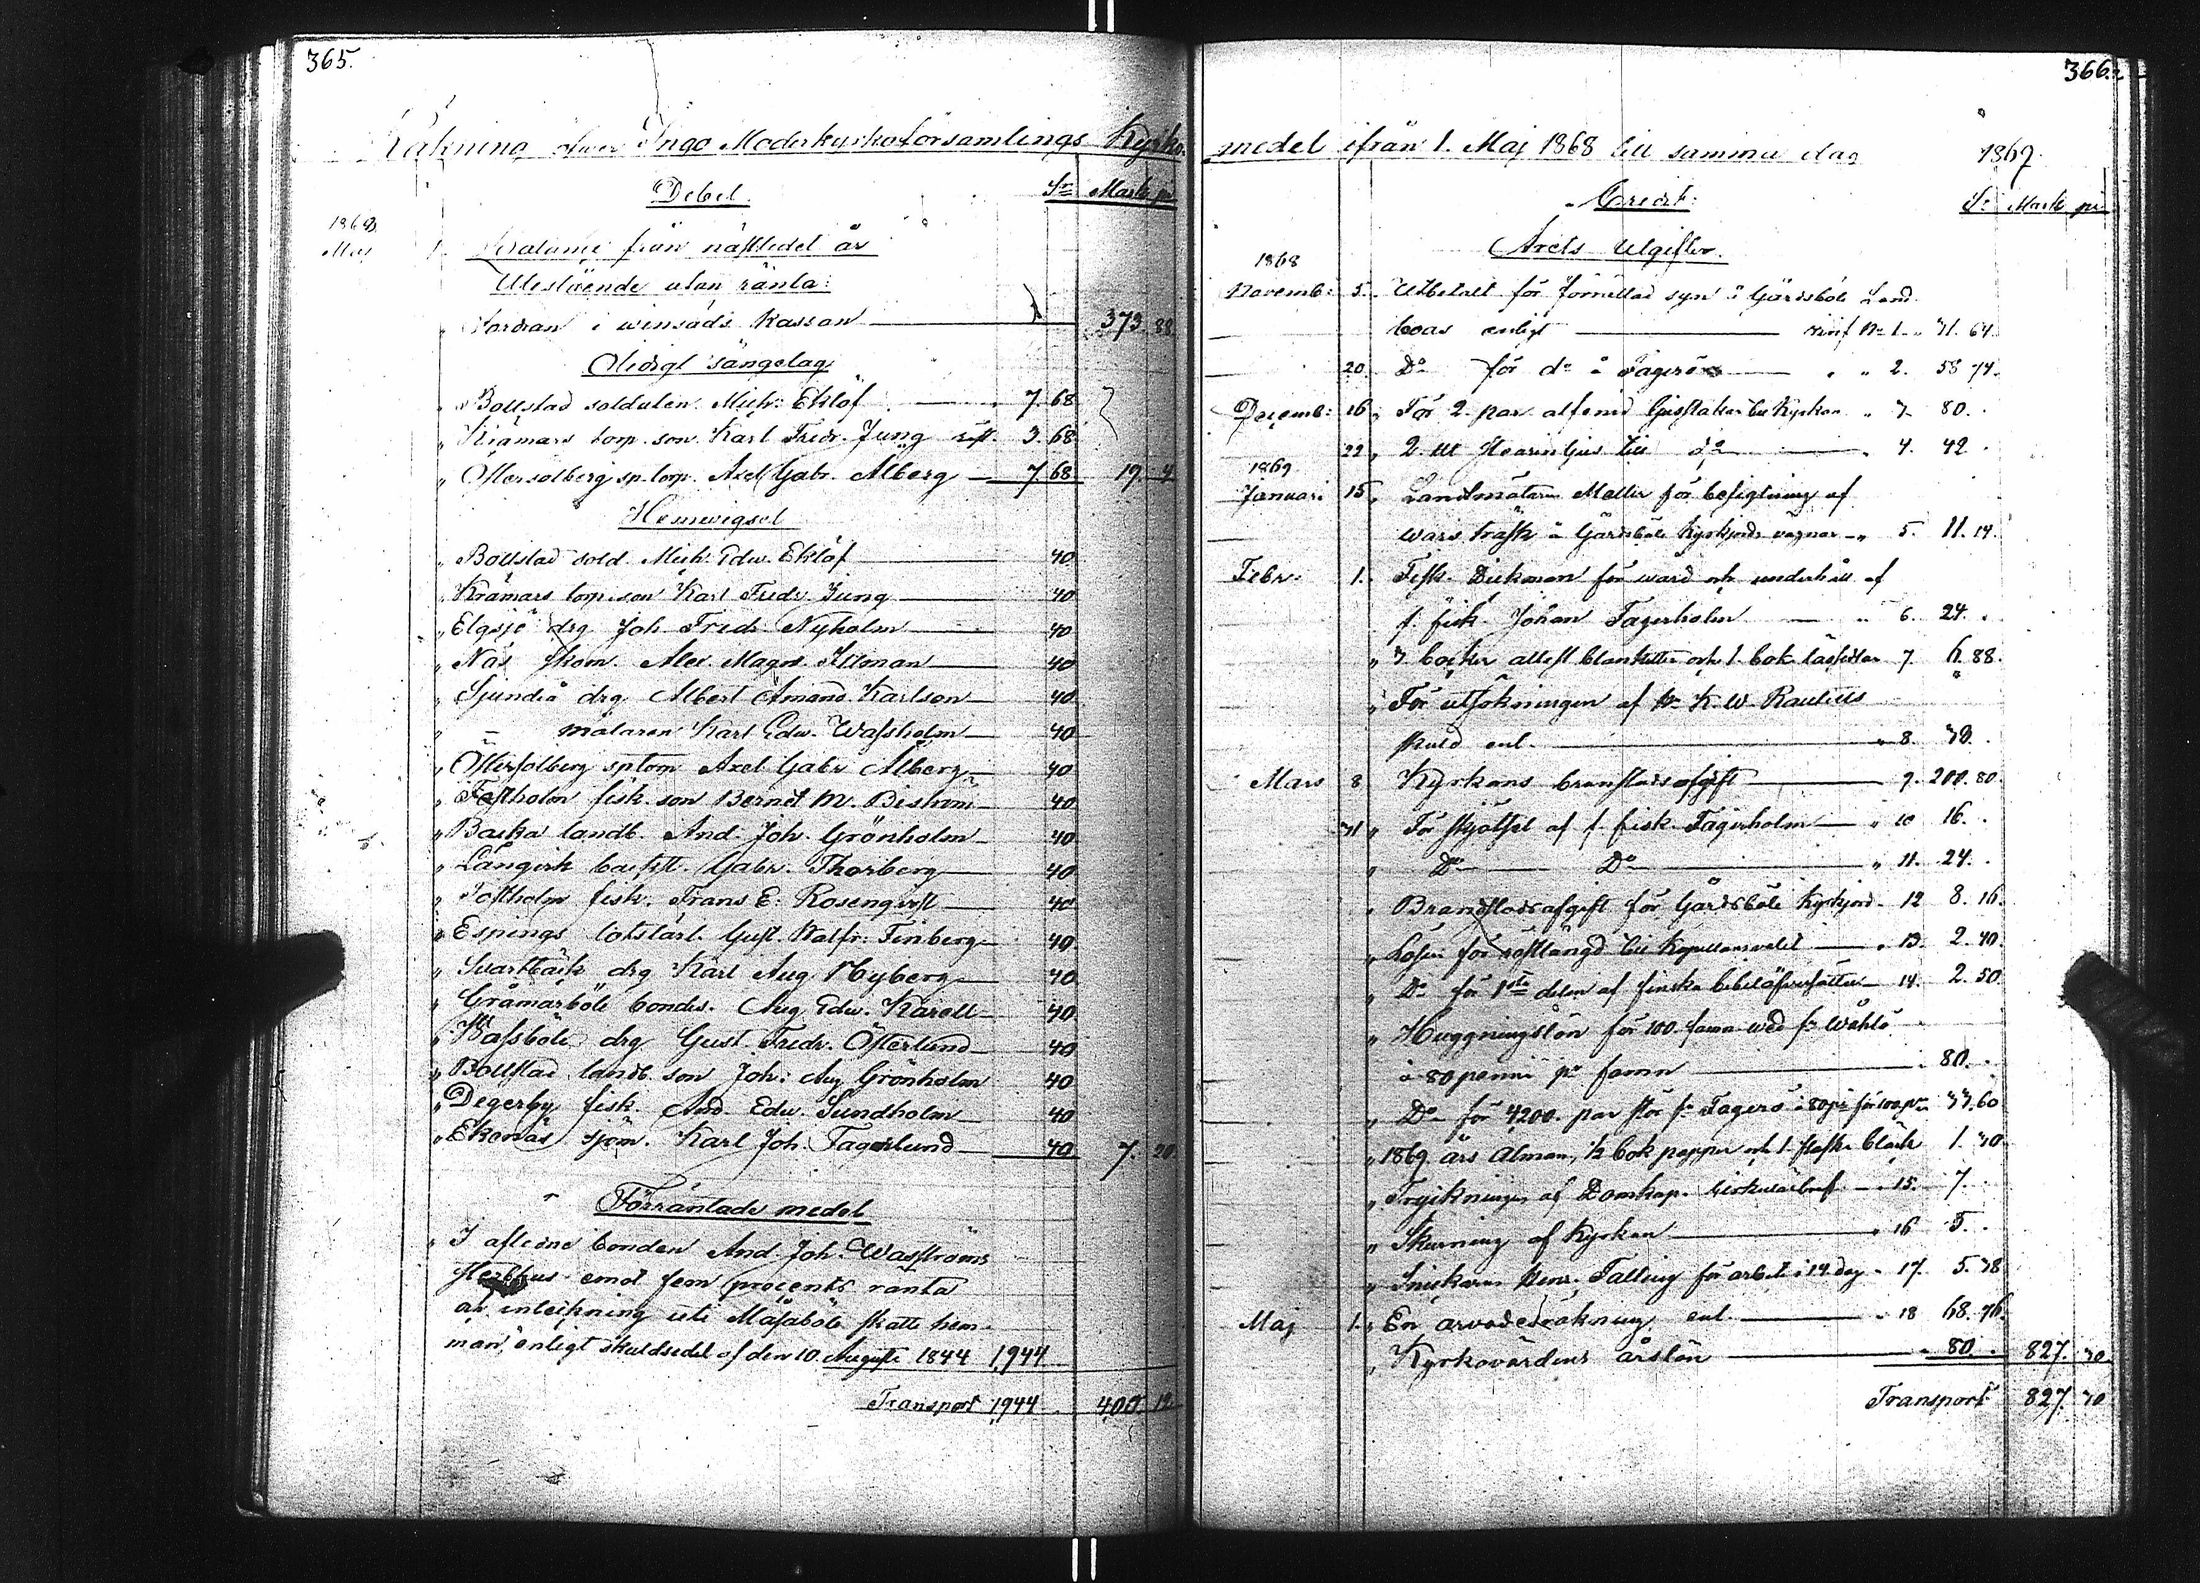 365.
Räkning öfwer Ingo Moderkyrkoförsamlings Kyrko-
Debet.
Sr Mark pi
1868
Maj 1. Balance från nästledet år
Utestående utan ränta:
Fordran i winsäds Kassan 373. 88
Obergt sängelag
" Bollstad soldaten Mich: Eklöf 7. 68
" Krämars torp. son Karl Fredr. Jung rest. 3. 68
" Östersolberg sp. torp. Axel Gabr. Alberg 7. 68 19. 4
Hemwigsel
" Bollstad sold. Mich. Edw. Eklöf 40
" Krämars torp. son Karl Fredr. Jung 40
" Elgsjö drg Joh. Fredr. Nyholm 40
" Näs Alex. Magn. 40
" Sjundeå drg Albert Amand. Karlson 40
" målaren Karl Edw. Wassholm 40
" Östersolberg sp torp Axel Gabr Alberg 40
" fisk. son Bernd W. Biström 40
" Backa landb. And. Joh. Grönholm 40
" Gabr. Thorberg 40
" fisk. Frans E. Rosenqvist 40
" Espings Gust. Walfr. Tinberg 40
" Svartbäck drg Karl Aug Nyberg 40
" Gråmarböle bondes. Aug Edw. Karell 40
" drg Gust. Fredr. Österlund 40
" Bollstad landb. son Joh: Aug Grönholm 40
" Degerby fisk. And. Edw. Sundholm 40
" Ekenäs sjöm. Karl Joh. Fagerlund 40 7. 20
Förräntade medel
" I aflidne bonden And. Joh. Wasströms
Sterbhus emot fem procents ränta
och inteckning uti Måsaböle skatte hem-
man, enligt skuldsedel af den 10 Augusti 1844 1,944
Transport 1,944 400. 12
366.
medel ifrån 1. Maj 1868 till samma dag 1869.
Credit:
Sr Mark pi
Årets utgifter.
1868
Novemb: 5. Utbetalt för förrättad syn å Gårdsböle Land
boas enligt verif No 1. 31. 64.
20. Do för do å Fagerö " " 2. 58 74.
Decemb: 16 " För 2 par ljusstakar till Kyrkan " 3 80.
22 " 2 ljus till do 4. 42.
1869
Januari 15 " Landtmätaren Meller för besigtning af
träsk å Gårdsböle Kyrkjords ägnor " 5. 11. 14.
Febr. 1. Fisk. Dickman för wård och underhåll af
f. fisk. Johan Fagerholm " 6. 24.
" 3 böcker attest blanketter och 1. bok 7. 6. 88.
" För utsökningen af K. W.
skuld enl. " 8. 39.
Mars 8 Kyrkans branstodsafgift 9. 200. 80.
31 " För skjötsel af f. fisk. Fagerholm " 10 16.
" Do Do " 11. 24.
" Brandstodsafgift för Gårdsböle Kyrkjord 12 8. 16.
" Lösen för röstlängd till Kapellansvalet " 13. 2. 40.
" Do för 1sta delen af finska 14. 2. 50
" Huggningslön för 100. famn wed fr Wåhlö
à 80 penni pr famn 80.
" Do för 4200. par stör fr Fagerö à 80 pi för 100 pr 33. 60
" 1869 års Alman., ½ bok papper och 1. flaska bläck 1. 30
" af Domkap. cirkulärbref 15. 7.
" Skurning af Kyrkan " 16 5.
" Snickaren Henr. Talling för arbete i 14 dag. " 17. 5. 38
Maj 1. " En arvodesräkning enl. " 18 68. 76.
" Kyrkovärdens årslön 80. 827. 30.
Transport 827. 30